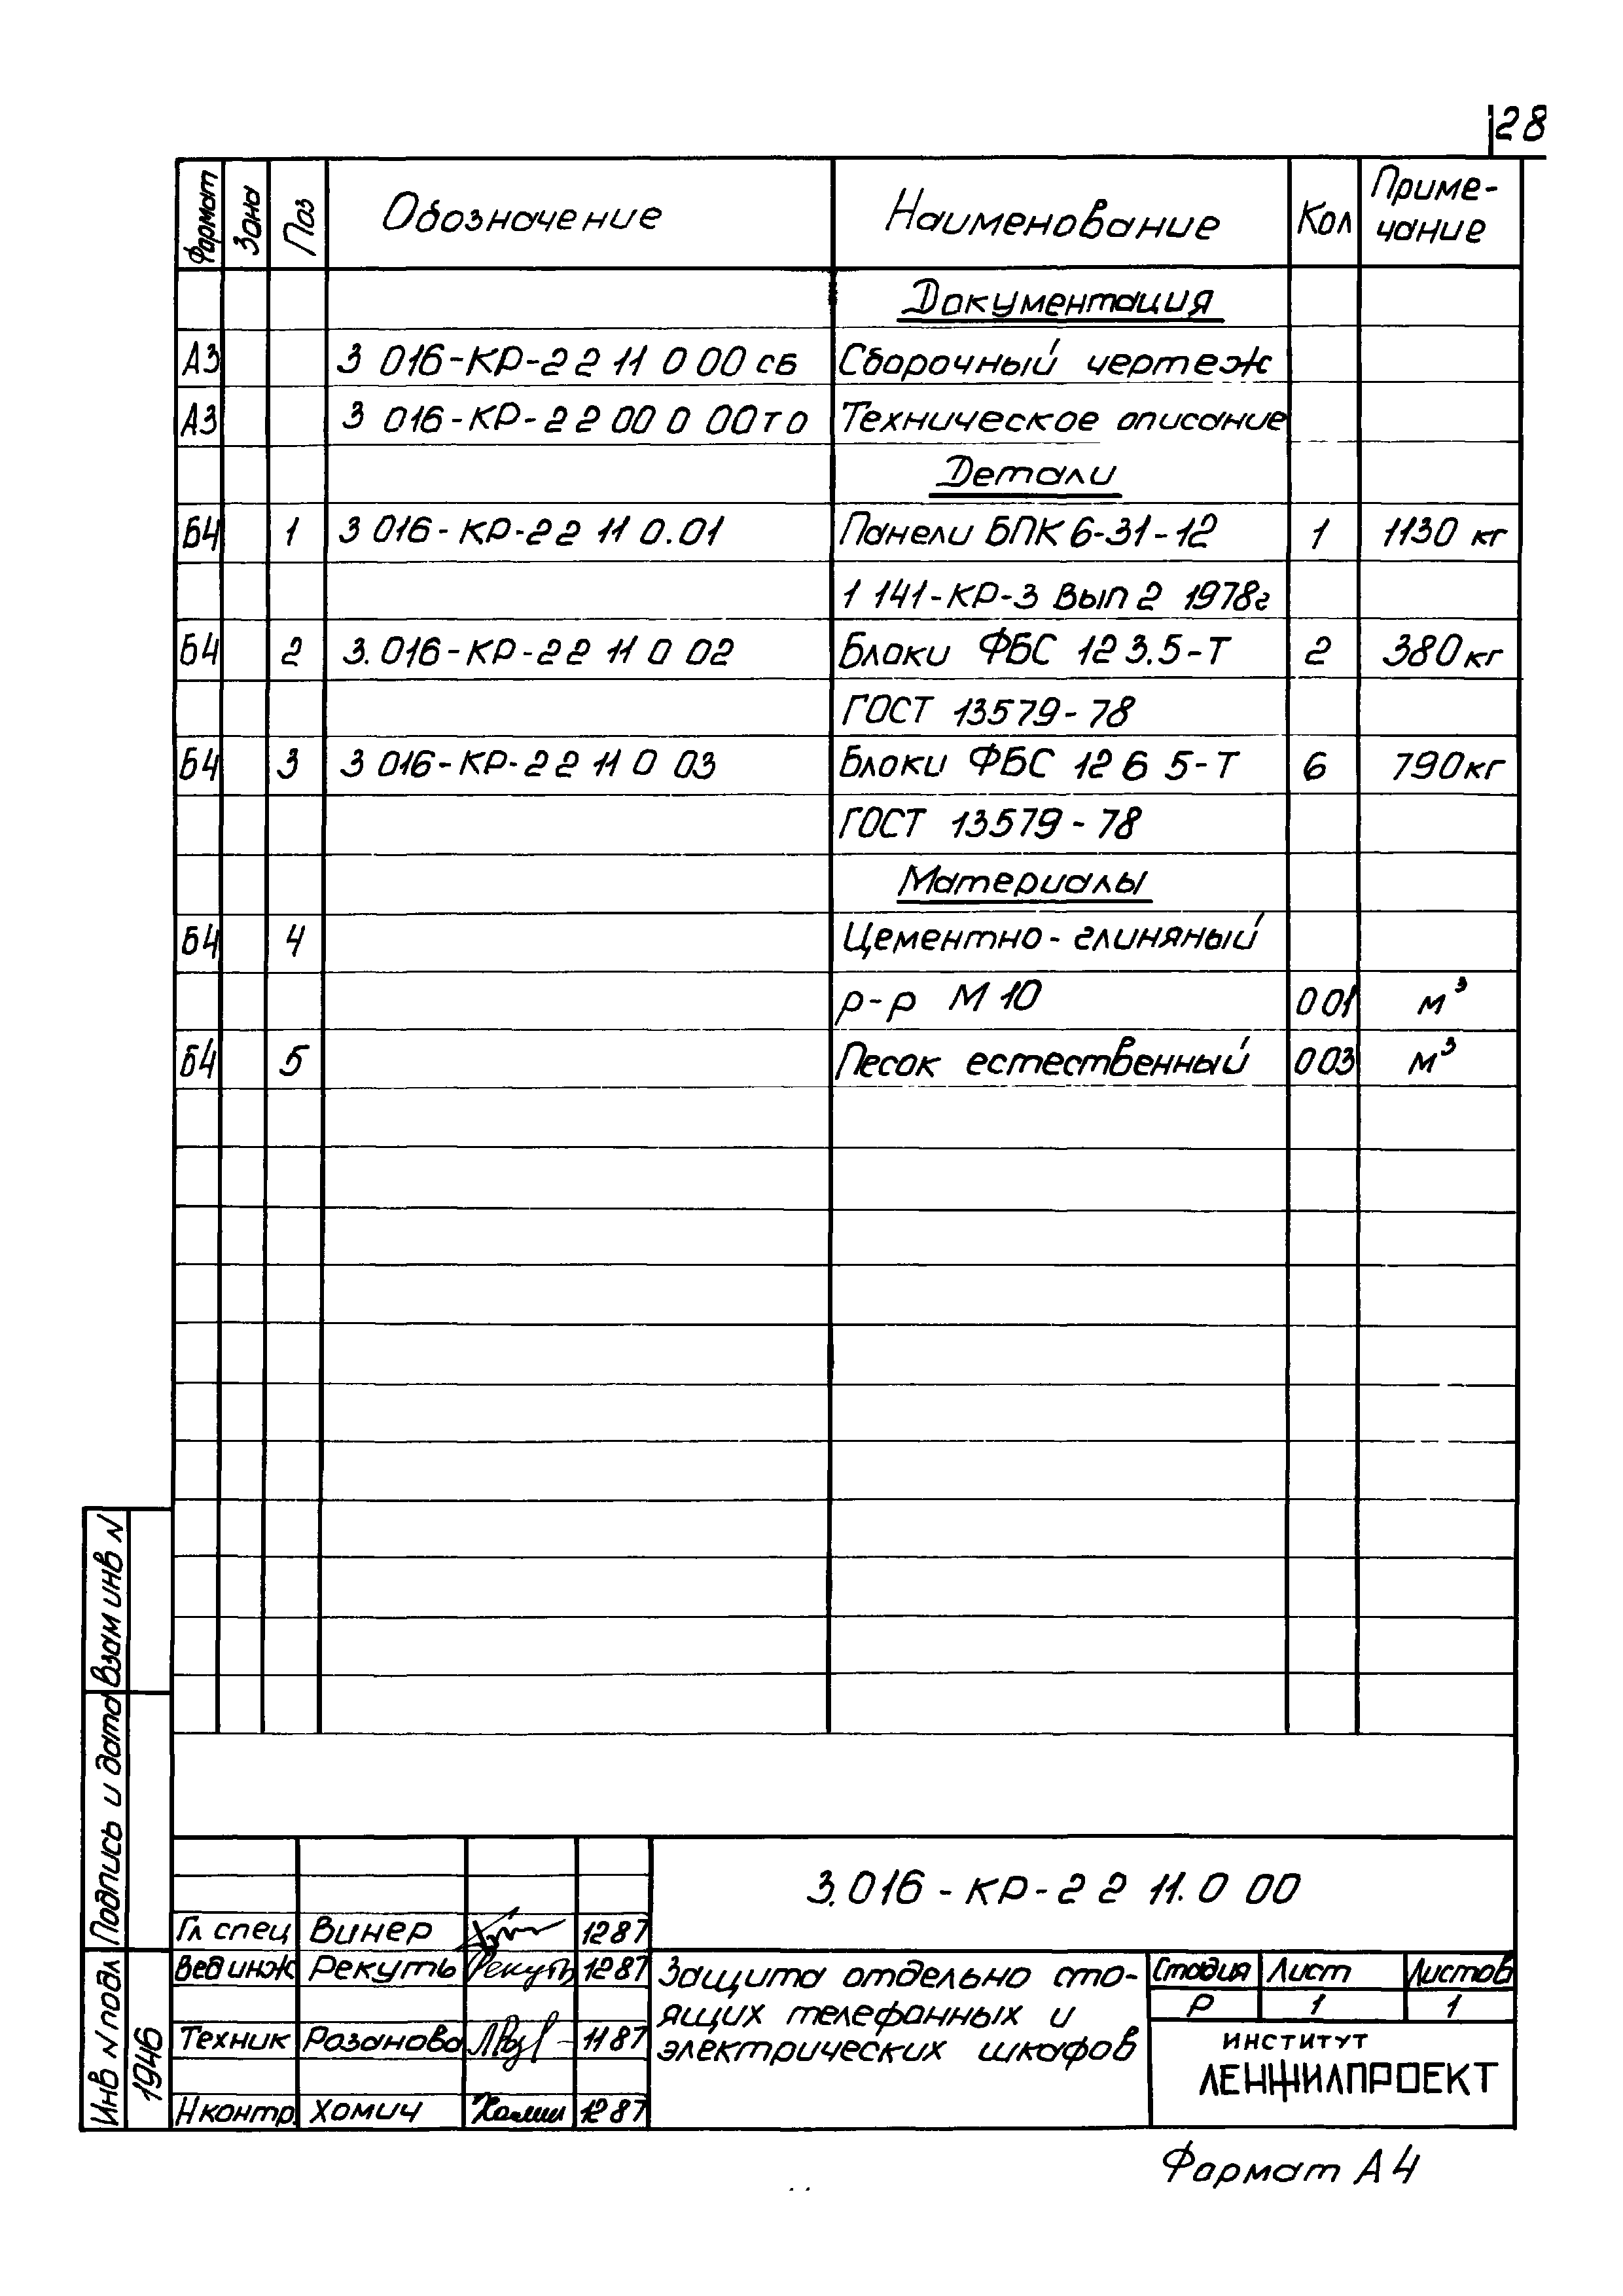 28
Формат Зона Поз Обозначение Наименование Кол Приме-
чание
Документация
А3 3 016-КР-2 2 11 0 00 сб Сборочный чертеж
А3 3 016-КР-2 2 00 0 00 то Техническое описание
Детали
Б4 1 3 016-КР-2 2 11 0.01 Панели БПК 6-31-12 1 1130 кг
1 141-КР-3 Вып 2 1978г
Б4 2 3.016-КР-2 2 11 0 02 Блоки ФБС 12 3.5-Т 2 380 кг
ГОСТ 13579-78
Б4 3 3 016-КР-2 2 11 0 03 Блоки ФБС 12 6 5-Т 6 790 кг
ГОСТ 13579-78
Материалы
Б4 4 Цементно-глиняный
р-р М 10 0 01 м³
Б4 5 Песок естественный 0 03 м³
Взам инв N
Подпись и дата
Инв N подл
1946
3.016-КР-2 2 11.0 00
Гл спец Винер 12 87
Вед инж Рекуть Рекуть 12 87
Техник Розанова 11 87
Н контр. Хомич Хомич 12 87
Защита отдельно сто-
ящих телефонных и
электрических шкафов
Стадия Лист Листов
Р 1 1
ИНСТИТУТ
ЛЕНЖИЛПРОЕКТ
Формат А4